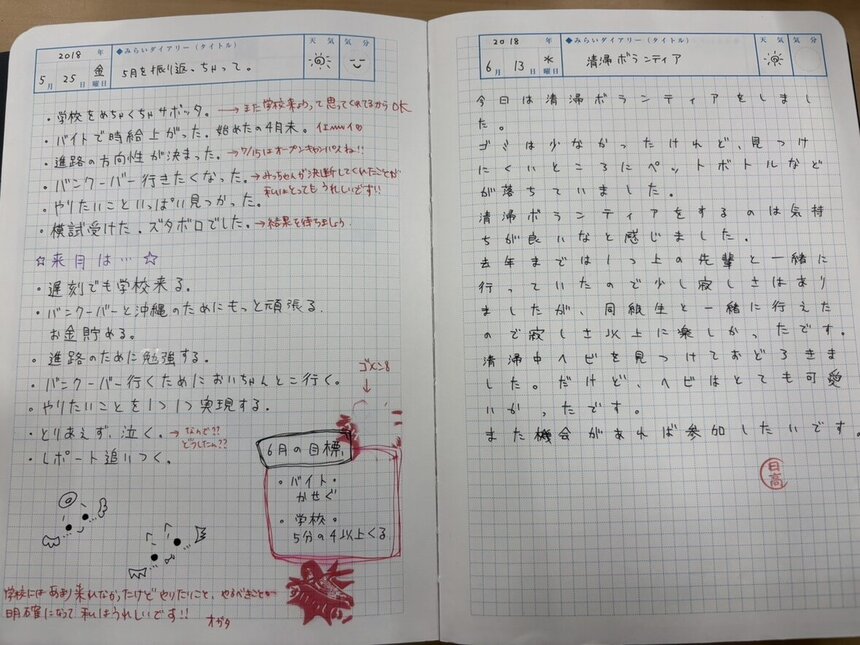 2018 年
5月 25日 金曜日
◆みらいダイアリー(タイトル)
5月を振り返っちゃって。
天気 気分
・学校をめちゃくちゃサボッタ。→また学校来ようって思ってくれてるからOK
・バイトで時給上がった。始めたの4月末。
・進路の方向性が決まった。→7/15はオープンキャンパスね!!
・バンクーバー行きたくなった。→みっちゃんが決断してくれたことが
私はとってもうれしいです!!
・やりたいこといっぱい見つかった。
・模試受けた。ズタボロでした。→結果を待ちましょう
☆来月は…☆
・遅刻でも学校来る。
・バンクーバーと沖縄のためにもっと頑張る。
お金貯める。
・進路のために勉強する。
・バンクーバー行くためにおいちゃんとこ行く。
・やりたいことを1つ1つ実現する。
・とりあえず、泣く。→なんで??
どうしたの??
・レポート追いつく。
ゴメン
↓
6月の目標。
・バイト・
かせぐ
・学校・
5分の4以上くる
学校にはあまり来れなかったけどやりたいこと、やるべきことが
明確になって私はうれしいです!! オガタ
2018 年
6月 13日 水曜日
◆みらいダイアリー(タイトル)
清掃ボランティア
天気 気分
今日は清掃ボランティアをしまし
た。
ゴミは少なかったけれど、見つけ
にくいところにペットボトルなど
が落ちていました。
清掃ボランティアをするのは気持
ちが良いなと感じました。
去年までは1つ上の先輩と一緒に
行っていたので少し寂しさはあり
ましたが、同級生と一緒に行えた
ので寂しさ以上に楽しかったです。
清掃中ヘビを見つけておどろきま
した。だけど、ヘビはとても可愛
いかったです。
また機会があれば参加したいです。
日高